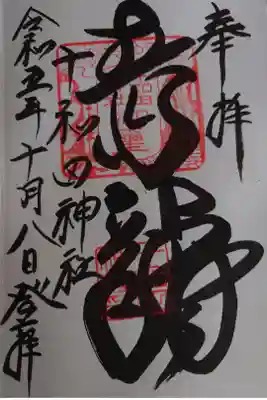 奉拝
青龍
十和田神社
令和五年十月八日登拝